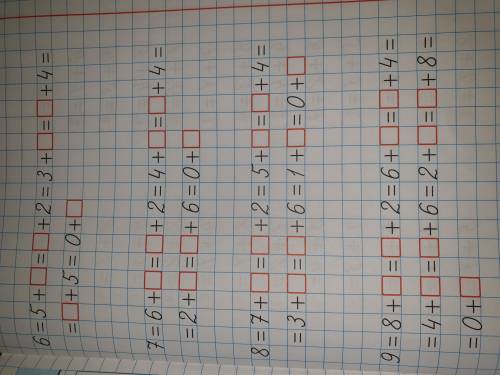 6=5+□=□+2=3+□=□+4=
=□+5=0+□
7=6+□=□+2=4+□=□+4=
=2+□=□+6=0+□
8=7+□=□+2=5+□=□+4=
=3+□=□+6=1+□=0+□
9=8+□=□+2=6+□=□+4=
=4+□=□+6=2+□=□+8=
=0+□